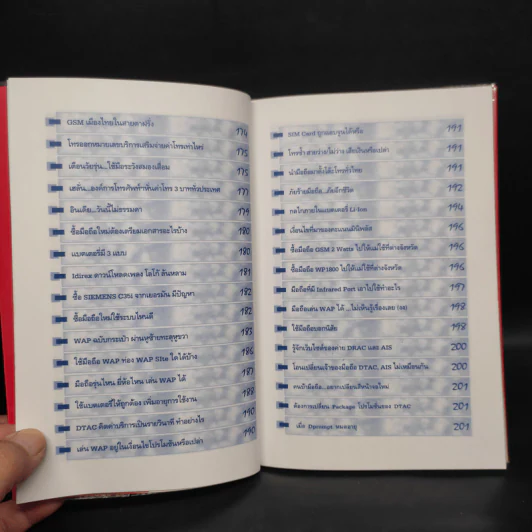 GSM เมืองไทยในสายตาฝรั่ง 174
โทรออกหมายเลขบริการเสริมจ่ายค่าโทรเท่าไหร่ 175
เตือนวัยรุ่น...ใช้มือระวังสมองเสื่อม 175
เฮลั่น...องค์การโทรศัพท์ฯหั่นค่าโทร 3 บาททั่วประเทศ 177
อินเดีย...วันนี้ไม่ธรรมดา 179
ซื้อมือถือใหม่ต้องเตรียมเอกสารอะไรบ้าง 180
แบตเตอรี่มี 3 แบบ 180
Idirex ดาวน์โหลดเพลง โลโก้ ล้นหลาม 181
ซื้อ SIEMENS C35i จากเยอรมัน มีปัญหา 182
ซื้อมือถือใหม่ใช้ระบบไหนดี 182
WAP ฉบับกระเป๋า ผ่านหูซ้ายทะลุหูขวา 183
ใช้มือถือ WAP ท่อง WAP Site ใดได้บ้าง 186
มือถือรุ่นไหน ยี่ห้อไหน เล่น WAP ได้ 187
ใช้แบตเตอรี่ให้ถูกต้อง เพิ่มอายุการใช้งาน 188
DTAC คิดค่าบริการเป็นรายวินาที ทำอย่างไร 190
เล่น WAP อยู่ในเงื่อนไขโปรโมชั่นหรือเปล่า 190
SIM Card ถูกแอบจูนได้หรือ 191
โทรซ้ำ สายว่าง/ไม่ว่าง เสียเงินหรือเปล่า 191
นำมือถือมาทั้งโต๊ะโทรทั่วไทย 191
ภัยร้ายมือถือ...ภัยถึงชีวิต 192
กลไกภายในแบตเตอรี่ Li-Ion 194
เงื่อนไขที่มาของคะแนนมินิพลัส 195
ซื้อมือถือ GSM 2 Watts ไปให้แม่ใช้ที่ต่างจังหวัด 196
ซื้อมือถือ WP1800 ไปให้แม่ใช้ที่ต่างจังหวัด 196
มือถือที่มี Infrared Port เอาไปใช้ทำอะไร 197
มือถือเล่น WAP ได้ ...ไม่เห็นรู้เรื่องเลย 198
ใช้มือถือบอกนิสัย 198
รู้จักเว็บไซต์ของค่าย DTAC และ AIS 200
โอนเปลี่ยนเจ้าของมือถือ DTAC, AIS ไม่เหมือนกัน 200
คนบ้ามือถือ...อยากเปลี่ยนสีหน้าจอใหม่ 201
ต้องการเปลี่ยน Package โปรโมชั่นของ DTAC 201
เมื่อ Dprompt หมดอายุ 201